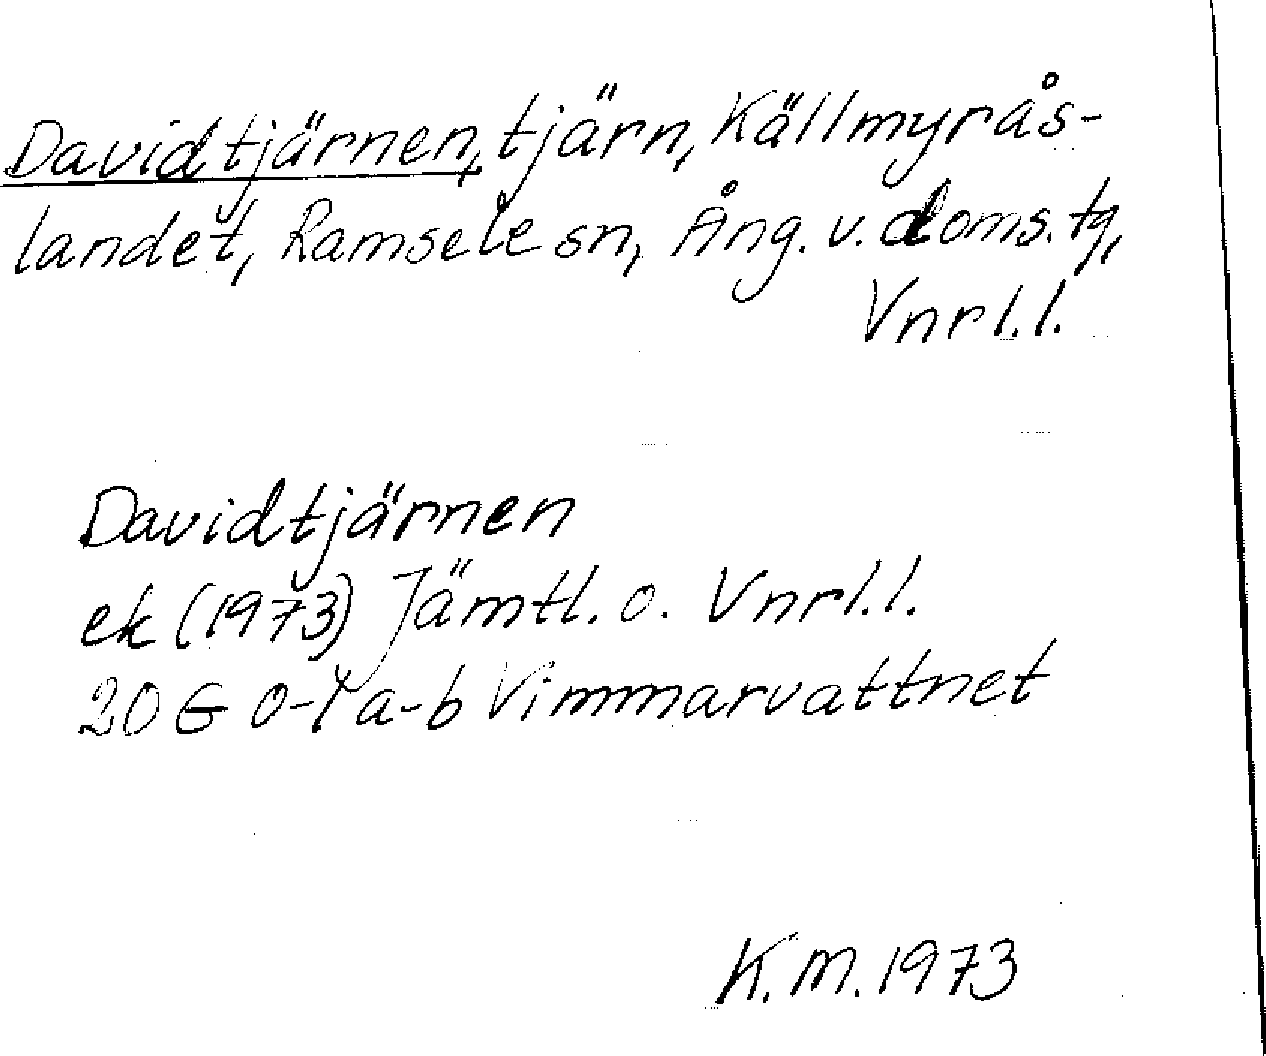 Davidtjärnen, tjärn, Källmyrås-
landet, Ramsele sn, Ång. v. doms. tg,
Vnrl.l.
Davidtjärnen
ek (1973) Jämtl. o. Vnrl.l.
20 G 0-1 a-b Vimmarvattnet
K.M. 1973